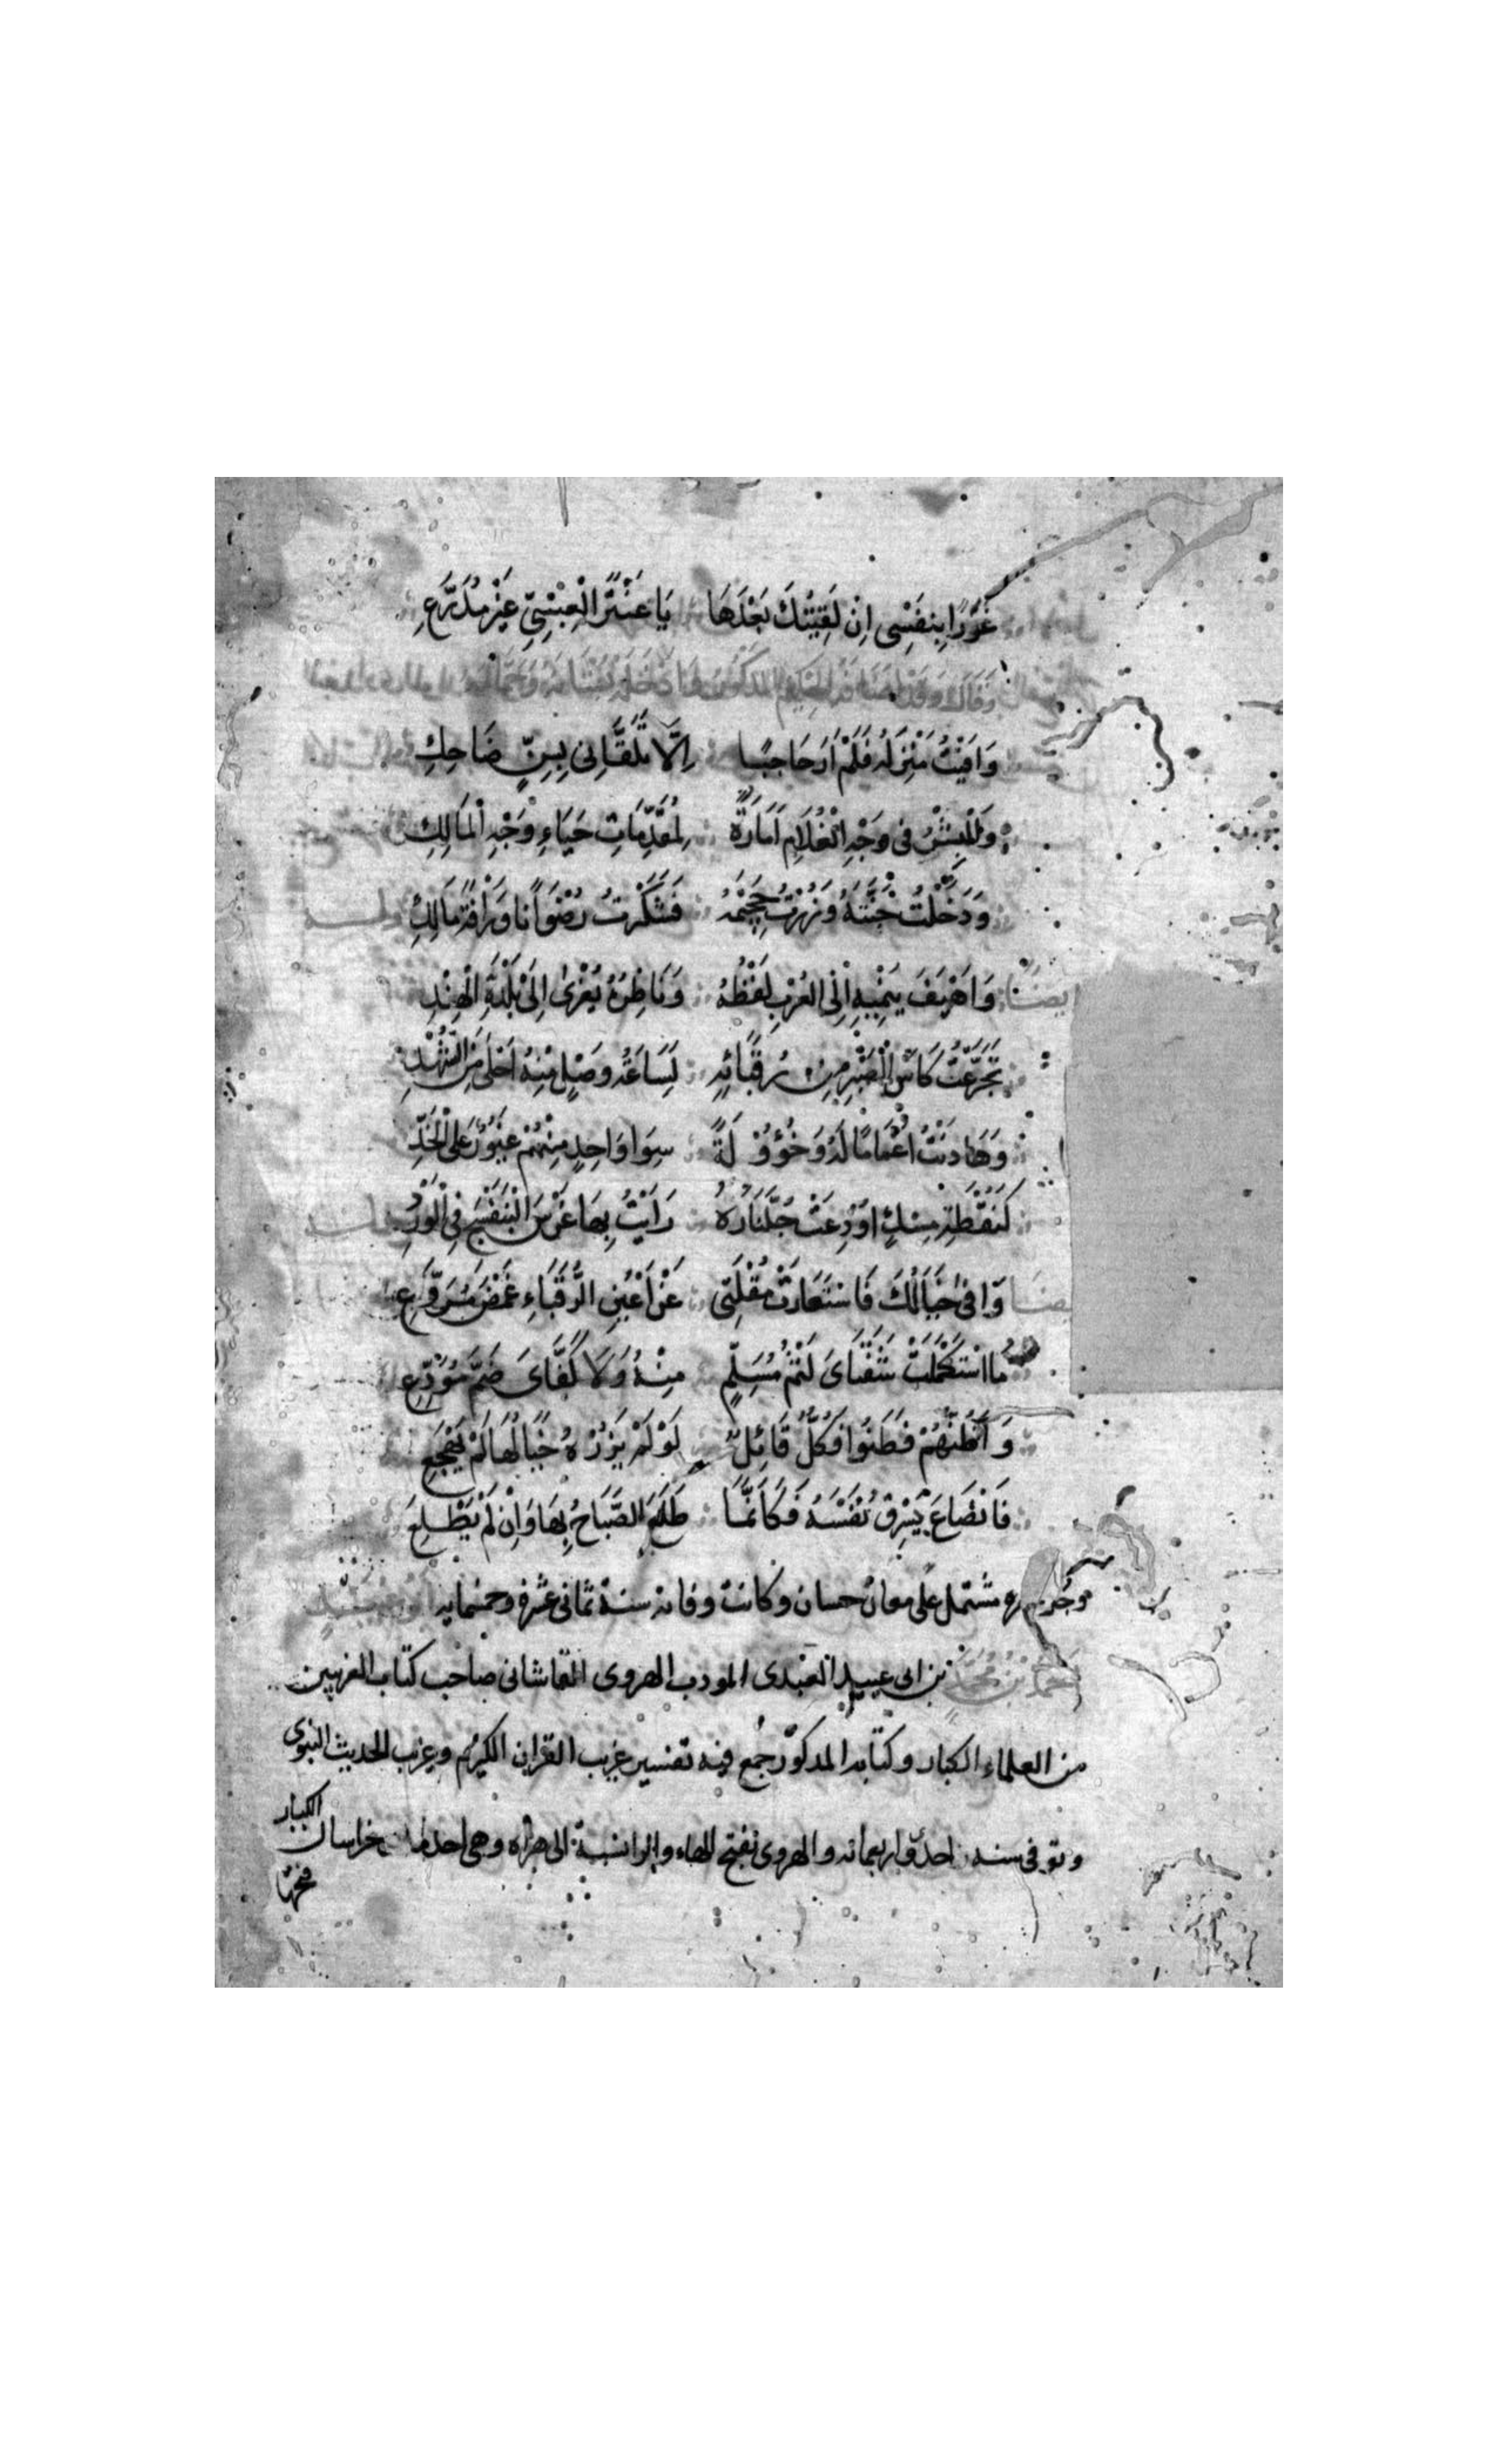 غَرَرًا بِنَفْسِى اِنْ لَقِيتُكَ بَعْدَهَا يَا عَنْتَرَ الْعَبْسِىِّ غَيْرَ مُدَرَّعِ
وَقَالَ وَقَدْ المذكور
وَافَيْتُ مَنْزِلَهُ فَلَمْ اَرَ حَاجِبًا اِلَّا تَلَقَّانِى بِسِنٍّ ضَاحِكِ
وَالْبِشْرُ فى وَجْهِ الْغُلَامِ اَمَارَةٌ لِمُقَدِّمَاتِ حَيَاءِ وَجْهِ الْمَالِكِ
وَدَخَلْتُ جَنَّتَهُ وَزُرْتُ جَحِيْمَهُ فَشَكَرْتُ رِضْوَانًا وَرَأْفَةَ مَالِكِ
ايضا وَاَهْيَفَ يَنْمِيْهِ اِلَى الْعُرْبِ لَفْظُهُ وَنَاظِرُهُ يُعْزَى اِلَى بَلْدَةِ الْهِنْدِ
تَجَرَّعْتُ كَأْسَ الصَّبْرِ مِنْ رُقَبَائِهِ لِسَاعَةِ وَصْلٍ مِنْهُ اَحْلَى مِنَ الشَّهْدِ
وَهَادَنْتُ اَعْمَامًا لَهُ وَخُؤُوْلَةً سِوَا وَاحِدٍ مِنْهُمْ غَيُوْرٍ عَلَى الْخَدِّ
كَنُقْطَةِ مِسْكٍ اُوْدِعَتْ جُلَّنَارَةً رَاَيْتُ بِهَا غَرْسَ الْبَنَفْسَجِ فِى الْوَرْدِ
ايضا وَافَى خَيَالُكَ فَاسْتَعَارَتْ مُقْلَتِى عَنْ اَعْيُنِ الرُّقَبَاءِ غَمْضَ مُرَوَّعِ
مَا اسْتَكْمَلَتْ شَفَتَاىَ لَثْمَ مُسَلِّمٍ مِنْهُ وَلَا كَفَّاىَ ضَمَّ مُوَدِّعِ
وَاَظُنُّهُمْ فَطِنُوا فَكُلٌّ قَائِلٌ لَوْ لَمْ يَزُرْهُ خَيَالُهَا لَمْ يَهْجَعِ
فَانْصَاعَ يَسْرِقُ نَفْسَهُ فَكَاَنَّمَا طَلَعَ الصَّبَاحُ بِهَا وَاِنْ لَمْ يَطْلُعِ
مشتمل على معان حسان وكانت وفاته سنة ثمانى عشرة وخمسمايه
احمد بن محمد بن ابى عبيد العبدى المودب الهروى الفاشانى صاحب كتاب الغريبين
من العلماء الكبار وكتابه المذكور جمع فيه تفسير غريب القران الكريم وغريب الحديث النبوى
وتوفى سنه احدى واربعمائه والهروى بفتح الهاء والرا نسبة الى هراه وهى احد خراسان الكبار
فتحها